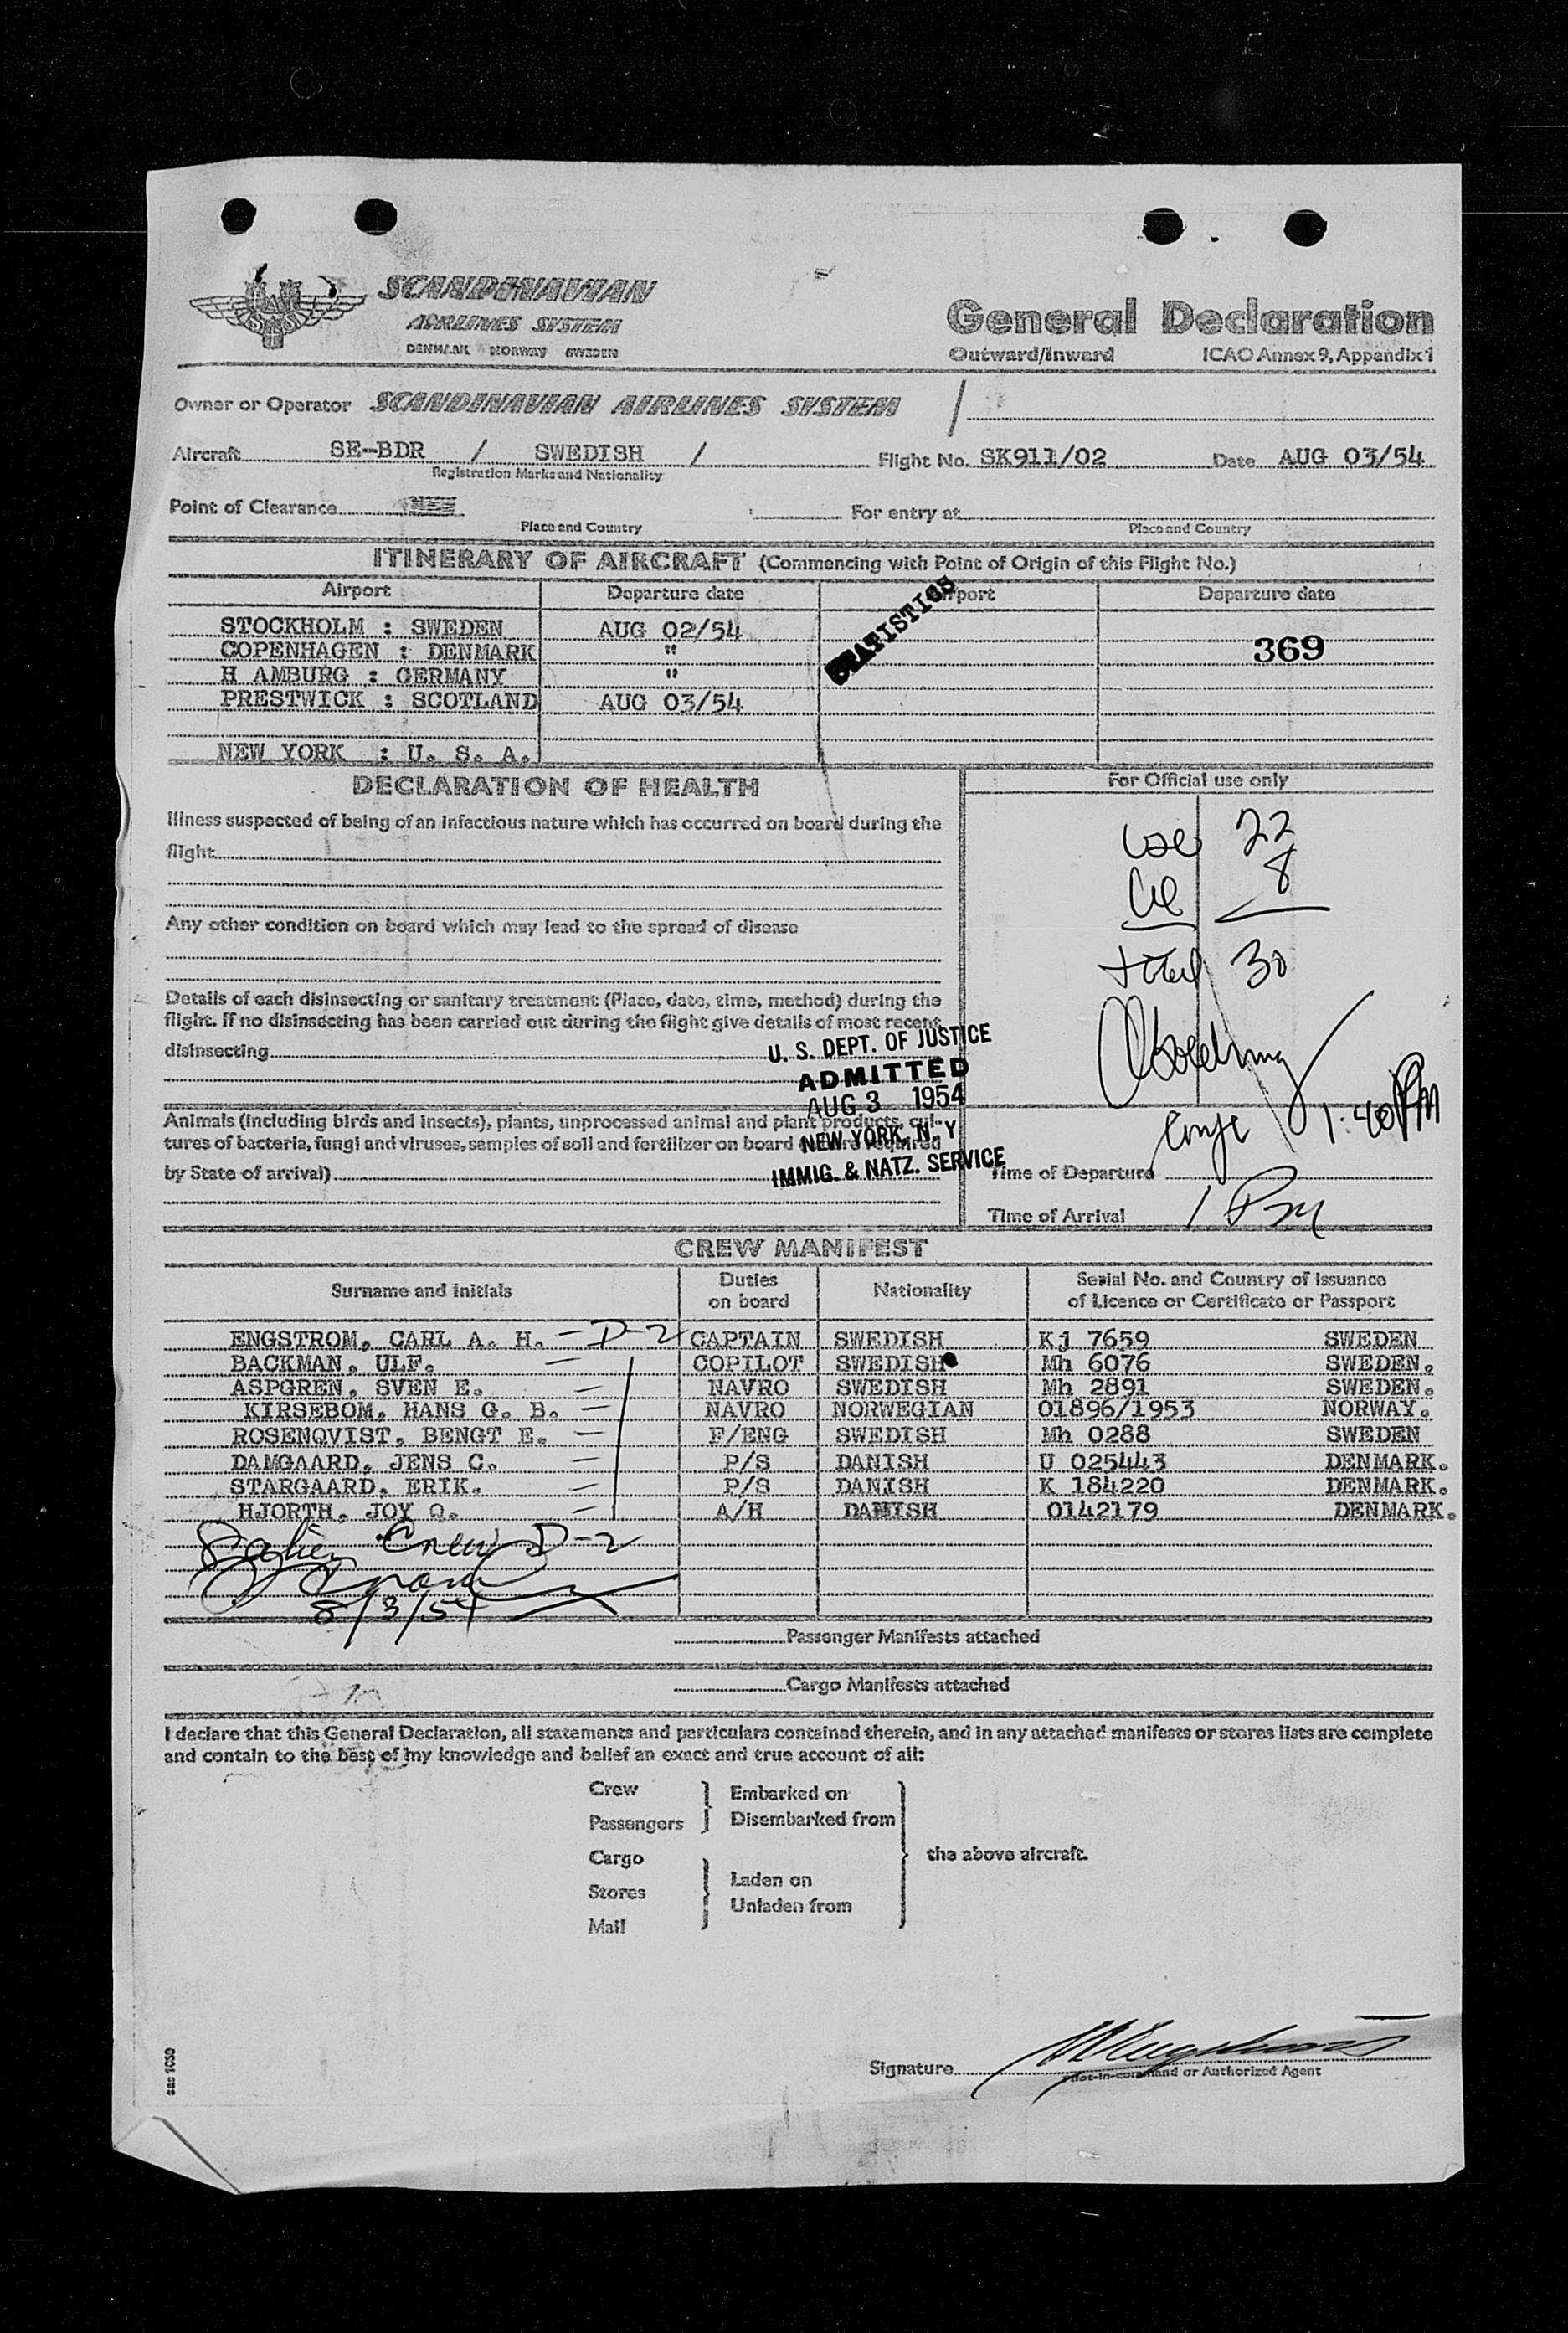 SCANDINAVIAN
AIRLINES SYSTEM
DENMARK NORWAY SWEDEN
General Declaration
Outward/Inward ICAO Annex 9, Appendix 1
Owner or Operator SCANDINAVIAN AIRLINES SYSTEM /
Aircraft SE-BDR / SWEDISH / Flight No. SK911/02 Date AUG 03/54
Registration Marks and Nationality
Point of Clearance For entry at
Place and Country Place and Country
ITINERARY OF AIRCRAFT (Commencing with Point of Origin of this Flight No.)
Airport Departure date Airport Departure date
STATISTICS
STOCKHOLM : SWEDEN AUG 02/54
COPENHAGEN : DENMARK " 369
H AMBURG : GERMANY "
PRESTWICK : SCOTLAND AUG 03/54
NEW YORK : U. S. A.
DECLARATION OF HEALTH
For Official use only
Illness suspected of being of an infectious nature which has occurred on board during the
flight
22
8
Any other condition on board which may lead to the spread of disease
total 30
Details of each disinsecting or sanitary treatment (Place, date, time, method) during the
flight. If no disinsecting has been carried out during the flight give details of most recent
disinsecting
U. S. DEPT. OF JUSTICE
ADMITTED
AUG 3 1954
NEW YORK, N. Y.
IMMIG. & NATZ. SERVICE
Animals (including birds and insects), plants, unprocessed animal and plant products, cul-
tures of bacteria, fungi and viruses, samples of soil and fertilizer on board
by State of arrival)
1:40 PM
Time of Departure
Time of Arrival 1 PM
CREW MANIFEST
Surname and initials Duties on board Nationality Serial No. and Country of issuance of Licence or Certificate or Passport
ENGSTROM, CARL A. H. - D-2 CAPTAIN SWEDISH Kj 7659 SWEDEN
BACKMAN, ULF. - COPILOT SWEDISH Mh 6076 SWEDEN.
ASPGREN, SVEN E. - NAVRO SWEDISH Mh 2891 SWEDEN.
KIRSEBOM, HANS G. B. - NAVRO NORWEGIAN 01896/1953 NORWAY.
ROSENQVIST, BENGT E. - F/ENG SWEDISH Mh 0288 SWEDEN
DAMGAARD, JENS C. - P/S DANISH U 025443 DENMARK.
STARGAARD, ERIK. - P/S DANISH K 184220 DENMARK.
HJORTH, JOY O. - A/H DANISH 0142179 DENMARK.
Crew D-2
8/3/54
Passenger Manifests attached
Cargo Manifests attached
I declare that this General Declaration, all statements and particulars contained therein, and in any attached manifests or stores lists are complete
and contain to the best of my knowledge and belief an exact and true account of all:
Crew Embarked on
Passengers Disembarked from
Cargo the above aircraft.
Stores Laden on
Mail Unladen from
sas 1030
Signature
Pilot-in-command or Authorized Agent